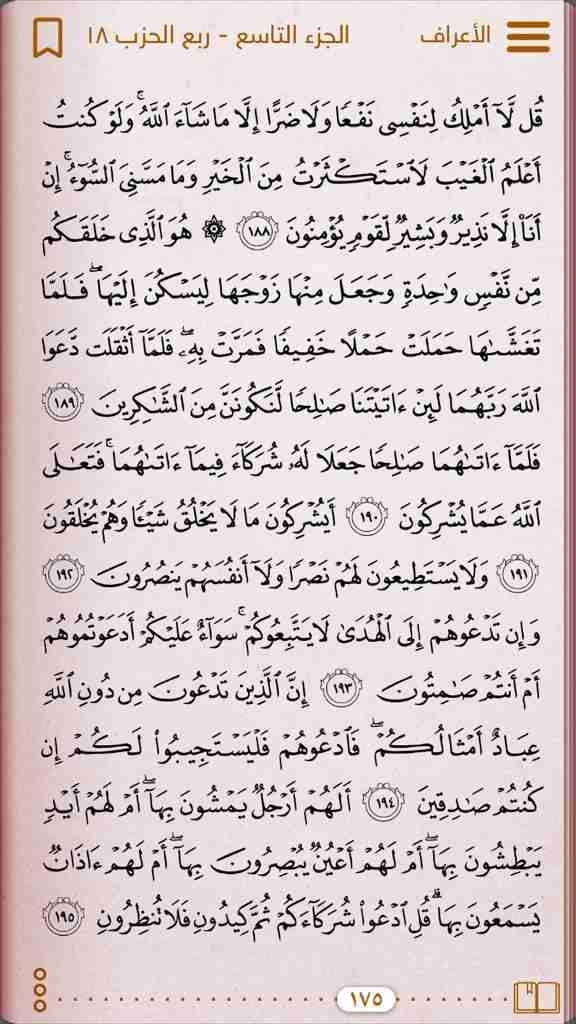 الأعراف
الجزء التاسع - ربع الحزب ١٨
قُل لَّآ أَمْلِكُ لِنَفْسِى نَفْعًا وَلَا ضَرًّا إِلَّا مَا شَآءَ ٱللَّهُ ۚ وَلَوْ كُنتُ
أَعْلَمُ ٱلْغَيْبَ لَٱسْتَكْثَرْتُ مِنَ ٱلْخَيْرِ وَمَا مَسَّنِىَ ٱلسُّوٓءُ ۚ إِنْ
أَنَا۠ إِلَّا نَذِيرٌ وَبَشِيرٌ لِّقَوْمٍ يُؤْمِنُونَ ١٨٨ ۞ هُوَ ٱلَّذِى خَلَقَكُم
مِّن نَّفْسٍ وَٰحِدَةٍ وَجَعَلَ مِنْهَا زَوْجَهَا لِيَسْكُنَ إِلَيْهَا ۖ فَلَمَّا
تَغَشَّىٰهَا حَمَلَتْ حَمْلًا خَفِيفًا فَمَرَّتْ بِهِۦ ۖ فَلَمَّآ أَثْقَلَت دَّعَوَا
ٱللَّهَ رَبَّهُمَا لَئِنْ ءَاتَيْتَنَا صَٰلِحًا لَّنَكُونَنَّ مِنَ ٱلشَّٰكِرِينَ ١٨٩
فَلَمَّآ ءَاتَىٰهُمَا صَٰلِحًا جَعَلَا لَهُۥ شُرَكَآءَ فِيمَآ ءَاتَىٰهُمَا ۚ فَتَعَٰلَى
ٱللَّهُ عَمَّا يُشْرِكُونَ ١٩٠ أَيُشْرِكُونَ مَا لَا يَخْلُقُ شَيْـًٔا وَهُمْ يُخْلَقُونَ
١٩١ وَلَا يَسْتَطِيعُونَ لَهُمْ نَصْرًا وَلَآ أَنفُسَهُمْ يَنصُرُونَ ١٩٢
وَإِن تَدْعُوهُمْ إِلَى ٱلْهُدَىٰ لَا يَتَّبِعُوكُمْ ۚ سَوَآءٌ عَلَيْكُمْ أَدَعَوْتُمُوهُمْ
أَمْ أَنتُمْ صَٰمِتُونَ ١٩٣ إِنَّ ٱلَّذِينَ تَدْعُونَ مِن دُونِ ٱللَّهِ
عِبَادٌ أَمْثَالُكُمْ ۖ فَٱدْعُوهُمْ فَلْيَسْتَجِيبُوا۟ لَكُمْ إِن
كُنتُمْ صَٰدِقِينَ ١٩٤ أَلَهُمْ أَرْجُلٌ يَمْشُونَ بِهَآ ۖ أَمْ لَهُمْ أَيْدٍ
يَبْطِشُونَ بِهَآ ۖ أَمْ لَهُمْ أَعْيُنٌ يُبْصِرُونَ بِهَآ ۖ أَمْ لَهُمْ ءَاذَانٌ
يَسْمَعُونَ بِهَا ۗ قُلِ ٱدْعُوا۟ شُرَكَآءَكُمْ ثُمَّ كِيدُونِ فَلَا تُنظِرُونِ ١٩٥
١٧٥